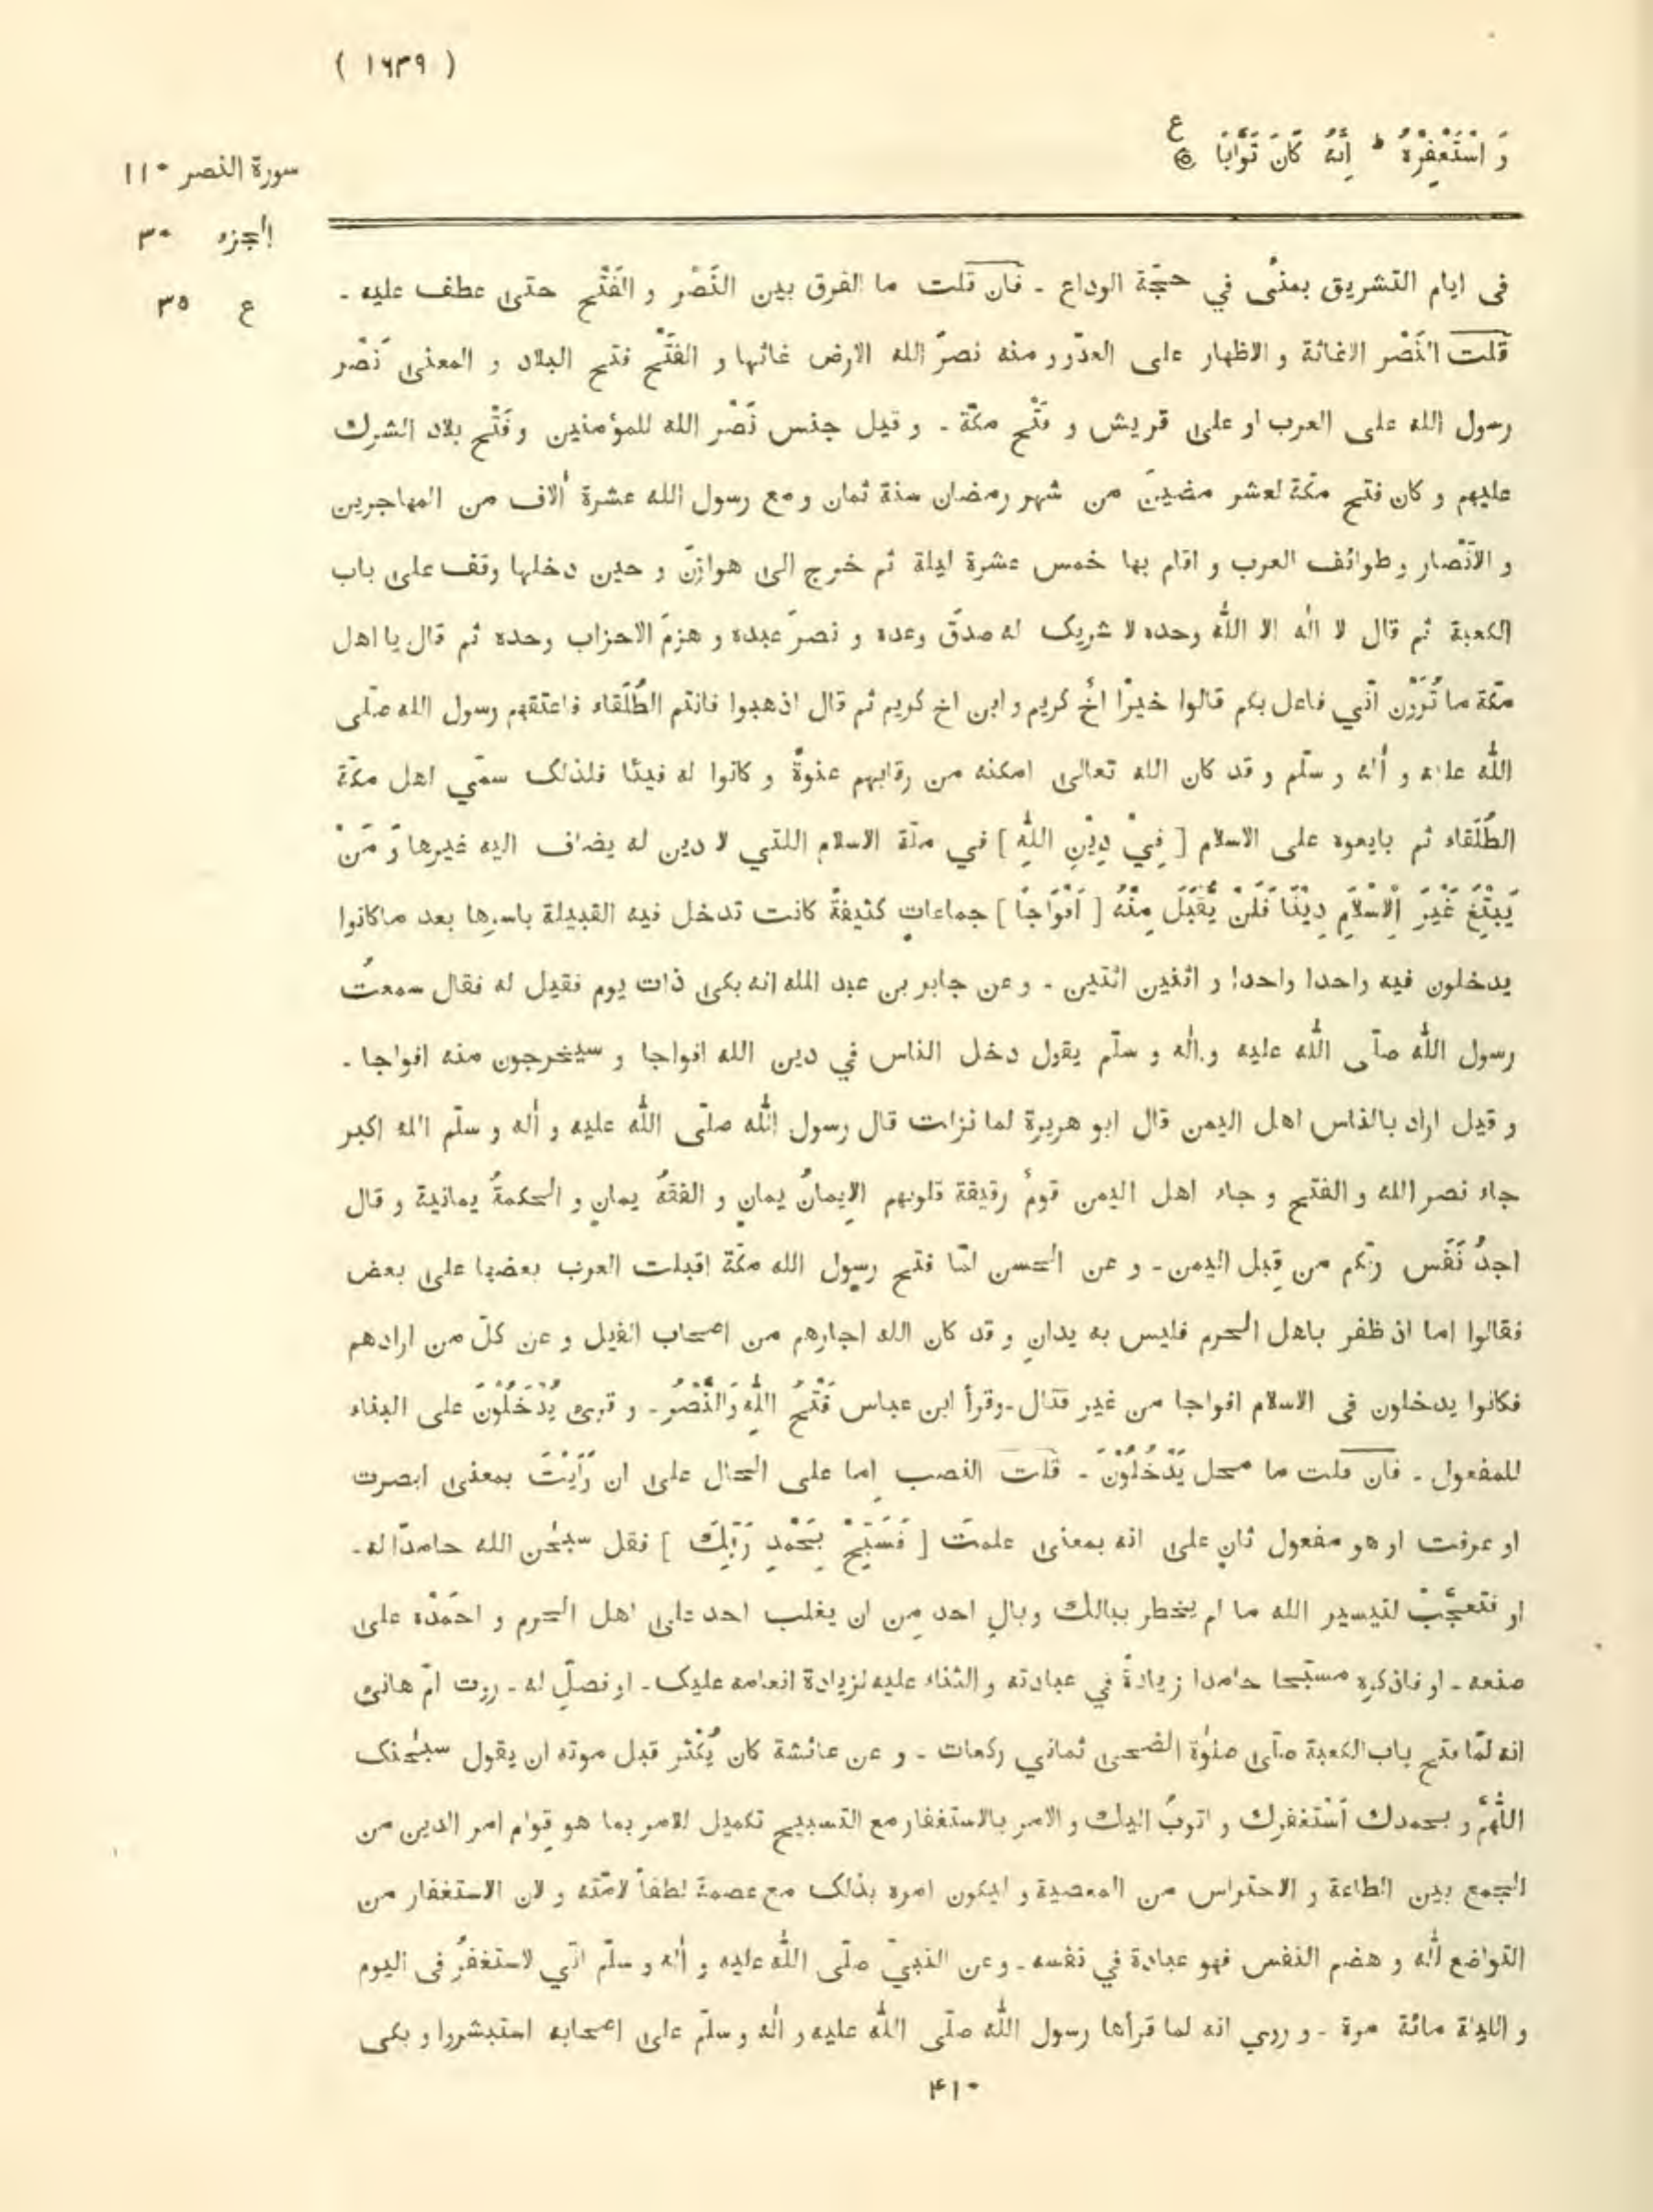 ( ١٦٣٩ )
وَ اسْتَغْفِرْهُ ط اِنَّهُ كَانَ تَوَّابًا ع
سورة النصر ١١٠
الجزء ٣٠
ع ٣٥
فى ايام التشريق بمنًى في حجّة الوداع - فان قلت ما الفرق بين النَّصْر و الفَتْح حتى عطف عليه -
قلت النَّصْر الاغاثة و الاظهار على العدّو و منه نصرَ الله الارض غاثها و الفَتْح فتح البلاد و المعنى نَصْر
رسول الله على العرب او على قريش و فَتْح مكّة - و قيل جنس نَصْر الله للمؤمنين و فَتْح بلاد الشرك
عليهم و كان فتح مكّة لعشر مضينَ من شهر رمضان سنة ثمان و مع رسول الله عشرة اٰلاف من المهاجرين
و الاَنْصار و طوائف العرب و اقام بها خمس عشرة ليلة ثم خرج الى هوازنَ و حين دخلها وقف على باب
الكعبة ثم قال لا اله الا اللّٰه وحده لا شريک له صدقَ وعده و نصرَ عبده و هزمَ الاحزاب وحده ثم قال يا اهل
مكّة ما تُرَوْن انّي فاعل بكم قالوا خيرًا اخٌ كريم و ابن اخ كريم ثم قال اذهبوا فانتم الطُّلَقاء فاعتقهم رسول الله صلّى
اللّٰه عليه و اٰله و سلّم و قد كان الله تعالى امكنه من رقابهم عنوةً و كانوا له فيئًا فلذلک سمّي اهل مكّة
الطُلَقاء ثم بايعوه على الاسلام [ فِيْ دِيْنِ اللّٰهِ ] في ملّة الاسلام اللتي لا دين له يضاف اليه غيرها وَ مَنْ
يَبْتَغِ غَيْرَ الْاِسْلَامِ دِيْنًا فَلَنْ يُّقْبَلَ مِنْهُ [ اَفْوَاجًا ] جماعاتٍ كثيفةً كانت تدخل فيه القبيلة باسرِها بعد ما كانوا
يدخلون فيه واحدا واحدا و اثنين اثنين - و عن جابر بن عبد الله انه بكى ذات يوم فقيل له فقال سمعتُ
رسول اللّٰه صلّى اللّٰه عليه و اٰله و سلّم يقول دخل الناس في دين الله افواجا و سيخرجون منه افواجا -
و قيل اراد بالناس اهل اليمن قال ابو هريرة لما نزلت قال رسول اللّٰه صلّى اللّٰه عليه و اٰله و سلّم الله اكبر
جاء نصر الله و الفتح و جاء اهل اليمن قومٌ رقيقة قلوبهم الايمانُ يمانٍ و الفقهُ يمانٍ و الحكمةُ يمانية و قال
اجدُ نَفَس ربّكم من قِبل اليمن - و عن الحسن لمّا فتح رسول الله مكّة اقبلت العرب بعضها على بعض
فقالوا اما اذ ظفر باهل الحرم فليس به يدانِ و قد كان الله اجارهم من اصحاب الفيل و عن كلّ من ارادهم
فكانوا يدخلون فى الاسلام افواجا من غير قتال - وقرأ ابن عباس فَتْحُ اللّٰهِ وَالنَّصْرُ - و قرئ يُدْخَلُوْنَ على البناء
للمفعول - فان قلت ما محل يَدْخُلُوْنَ - قلت النصب اِما على الحال على ان رَاَيْتَ بمعنى ابصرت
او عرفت او هو مفعول ثانٍ على انه بمعنى علمتَ [ فَسَبِّحْ بِحَمْدِ رَبِّكَ ] فقل سبحٰن الله حامدًا له -
او فتعجّبْ لتيسير الله ما لم يخطر ببالك وبالِ احد مِن ان يغلب احد على اهل الحرم و احمَدْه على
صنعه - او فاذكره مسبّحا حامدا زيادةً في عبادته و الثناء عليه لزيادة انعامه عليک - او فصلِّ له - روت امّ هانئ
انه لمّا فتح باب الكعبة صلّى صلوٰة الضحى ثماني ركعات - و عن عائشة كان يُكْثر قبل موته ان يقول سبحٰنک
اللّٰهمَّ و بحمدك اَسْتغفرك و اتوبُ اليك و الامر بالاستغفار مع التسبيح تكميل للامر بما هو قِوام امر الدين من
الجمع بين الطاعة و الاحتراس من المعصية و ليكون امره بذلک مع عصمة لطفاً لامّته و لان الاستغفار من
التواضع للّٰه و هضم النفس فهو عبادة في نفسه - وعن النبيّ صلّى اللّٰه عليه و اٰله و سلّم انّي لاستغفرُ فى اليوم
و الليلة مائة مرة - و روي انه لما قرأها رسول اللّٰه صلّى اللّٰه عليه و اٰله و سلّم على اصحابه استبشروا و بكى
۴١٠